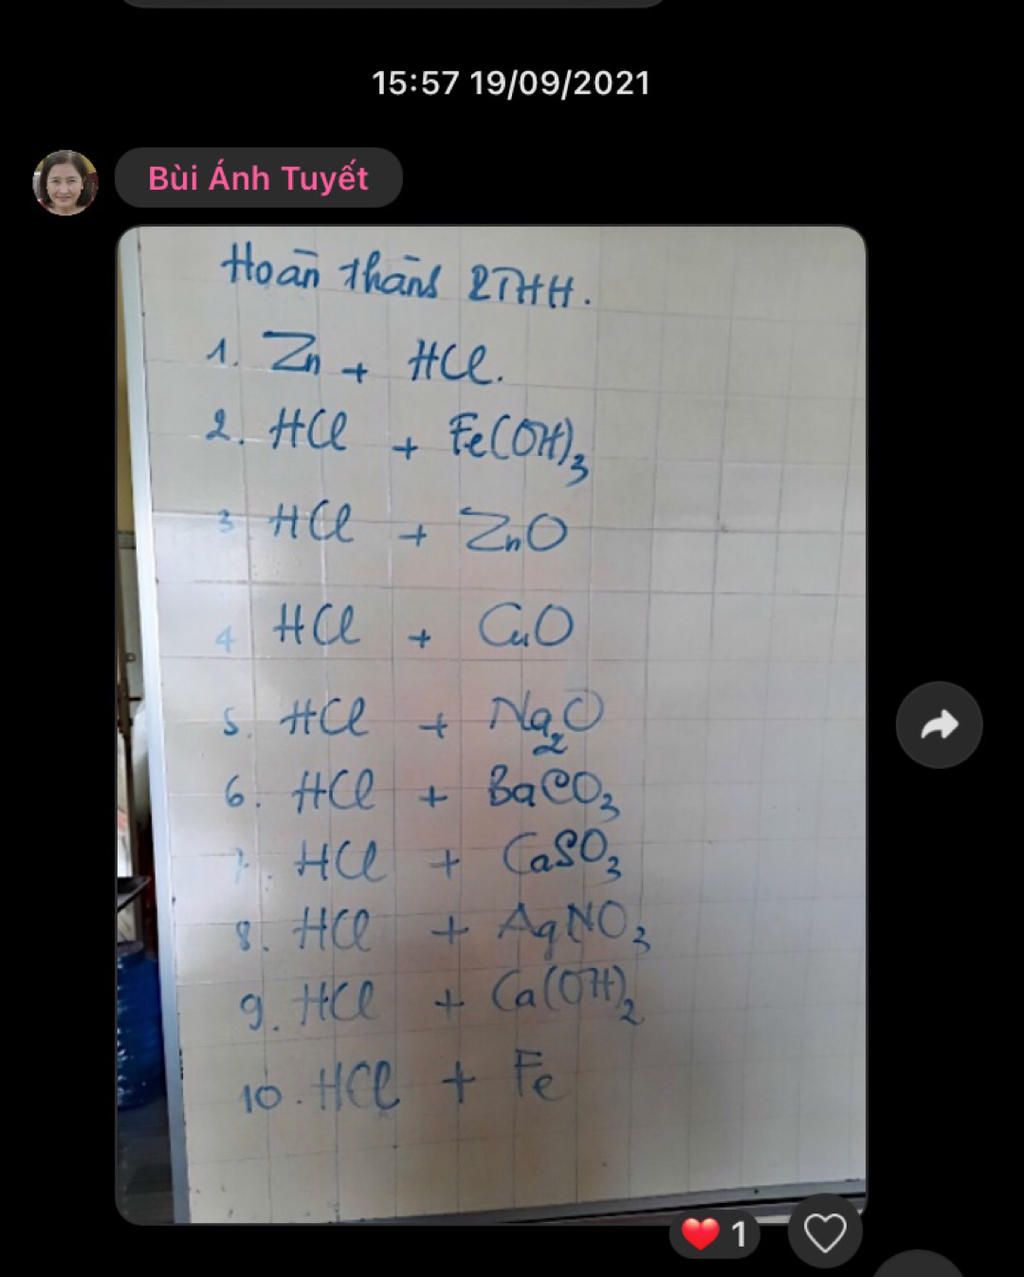 15:57 19/09/2021
Bùi Ánh Tuyết
Hoàn thành PTHH.
1. Zn + HCl.
2. HCl + Fe(OH)₃
3 HCl + ZnO
4 HCl + CuO
5. HCl + Na₂O
6. HCl + BaCO₃
7. HCl + CaSO₃
8. HCl + AgNO₃
9. HCl + Ca(OH)₂
10. HCl + Fe
1